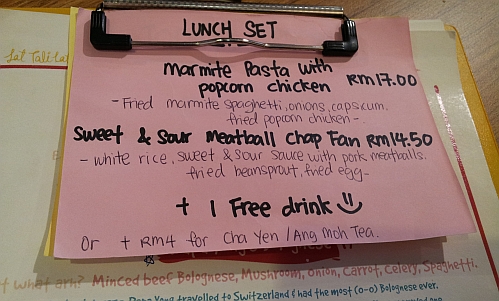 LUNCH SET
Marmite Pasta with
popcorn chicken RM17.00
- Fried marmite spaghetti, onions, capsicum.
fried popcorn chicken -
Sweet & Sour Meatball Chap Fan RM14.50
- white rice, sweet & sour sauce with pork meatballs.
fried beansprout, fried egg -
+ 1 Free drink
Or + RM4 for Cha Yen / Ang Moh Tea.
what arh? Minced beef Bolognese, Mushroom, Onion, Carrot, Celery, Spaghetti.
travelled to Switzerland & had the most (0-0) Bolognese ever.